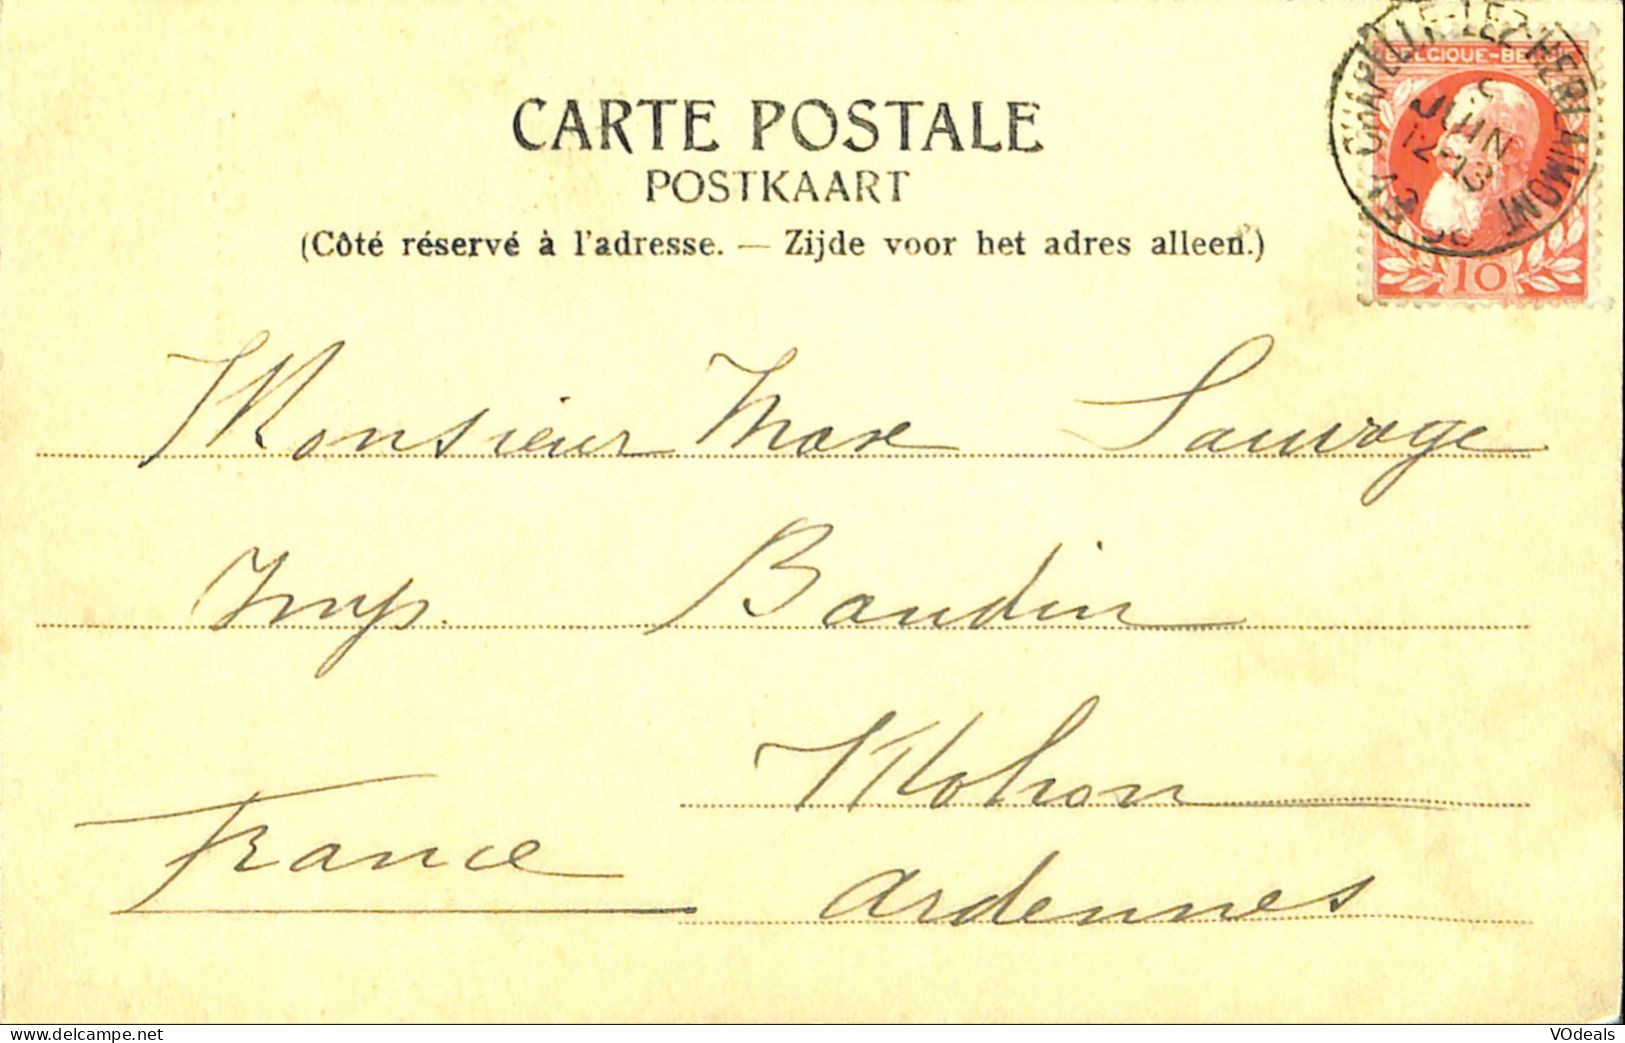 CHAPELLE-LEZ-HERLAIMONT
BELGIQUE-BE
JUIN
12-13
10
CARTE POSTALE
POSTKAART
(Côté réservé à l'adresse. — Zijde voor het adres alleen.)
Monsieur Max Sauvage
Imp. Baudin
Mohon
France
Ardennes
https://www.delcampe.net
VOdeals